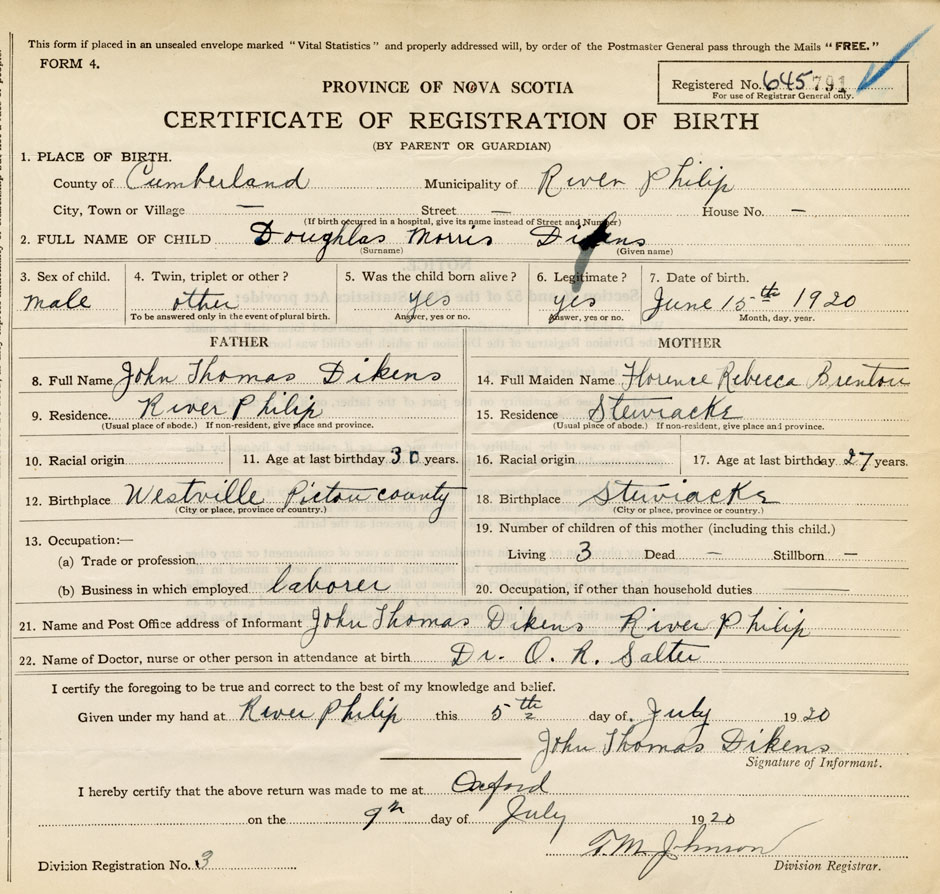 This form if placed in an unsealed envelope marked "Vital Statistics" and properly addressed will, by order of the Postmaster General pass through the Mails "FREE."
FORM 4.
Registered No. 645 791
For use of Registrar General only.
PROVINCE OF NOVA SCOTIA
CERTIFICATE OF REGISTRATION OF BIRTH
(BY PARENT OR GUARDIAN)
1. PLACE OF BIRTH.
County of Cumberland Municipality of River Philip
City, Town or Village — Street — House No. —
(If birth occurred in a hospital, give its name instead of Street and Number)
2. FULL NAME OF CHILD Doughlas Morris Dikens
(Surname) (Given name)
3. Sex of child. 4. Twin, triplet or other? 5. Was the child born alive? 6. Legitimate? 7. Date of birth.
male other yes yes June 15th 1920
To be answered only in the event of plural birth. Answer, yes or no. Answer, yes or no. Month, day, year.
FATHER MOTHER
8. Full Name John Thomas Dikens 14. Full Maiden Name Florence Rebecca Brenton
9. Residence. River Philip 15. Residence Stewiacke
(Usual place of abode.) If non-resident, give place and province. (Usual place of abode.) If non-resident, give place and province.
10. Racial origin 11. Age at last birthday 30 years. 16. Racial origin 17. Age at last birthday 27 years.
12. Birthplace Westville Pictou county 18. Birthplace Stewiacke
(City or place, province or country.) (City or place, province or country.)
13. Occupation:— 19. Number of children of this mother (including this child.)
(a) Trade or profession Living 3 Dead — Stillborn —
(b) Business in which employed laborer 20. Occupation, if other than household duties —
21. Name and Post Office address of Informant John Thomas Dikens River Philip
22. Name of Doctor, nurse or other person in attendance at birth Dr. O. R. Salter
I certify the foregoing to be true and correct to the best of my knowledge and belief.
Given under my hand at River Philip this 5th day of July 1920
John Thomas Dikens
Signature of Informant.
I hereby certify that the above return was made to me at Oxford
on the 9th day of July 1920
T. M. Johnson
Division Registration No. 3 Division Registrar.